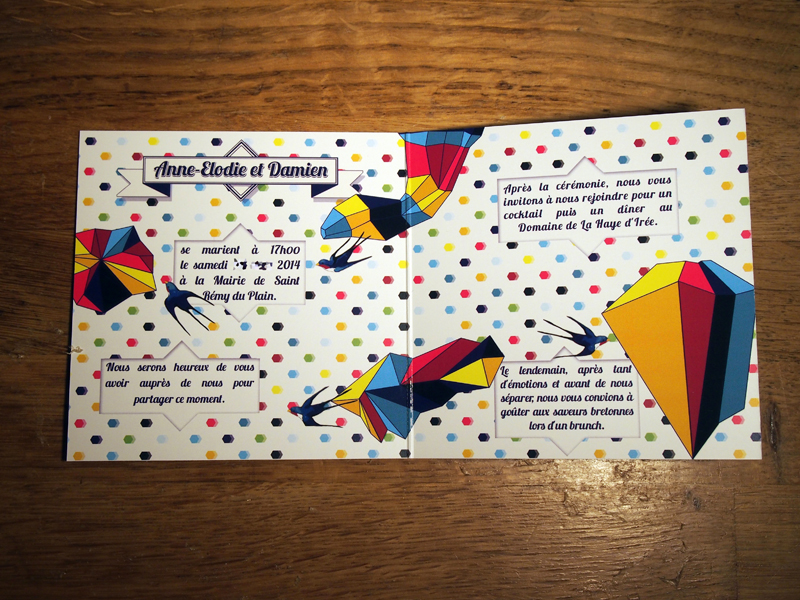 Anne-Elodie et Damien
se marient à 17h00
le samedi 2014
à la Mairie de Saint
Rémy du Plain.
Nous serons heureux de vous
avoir auprès de nous pour
partager ce moment.
Après la cérémonie, nous vous
invitons à nous rejoindre pour un
cocktail puis un dîner au
Domaine de La Haye d'Irée.
Le lendemain, après tant
d'émotions et avant de nous
séparer, nous vous convions à
goûter aux saveurs bretonnes
lors d'un brunch.